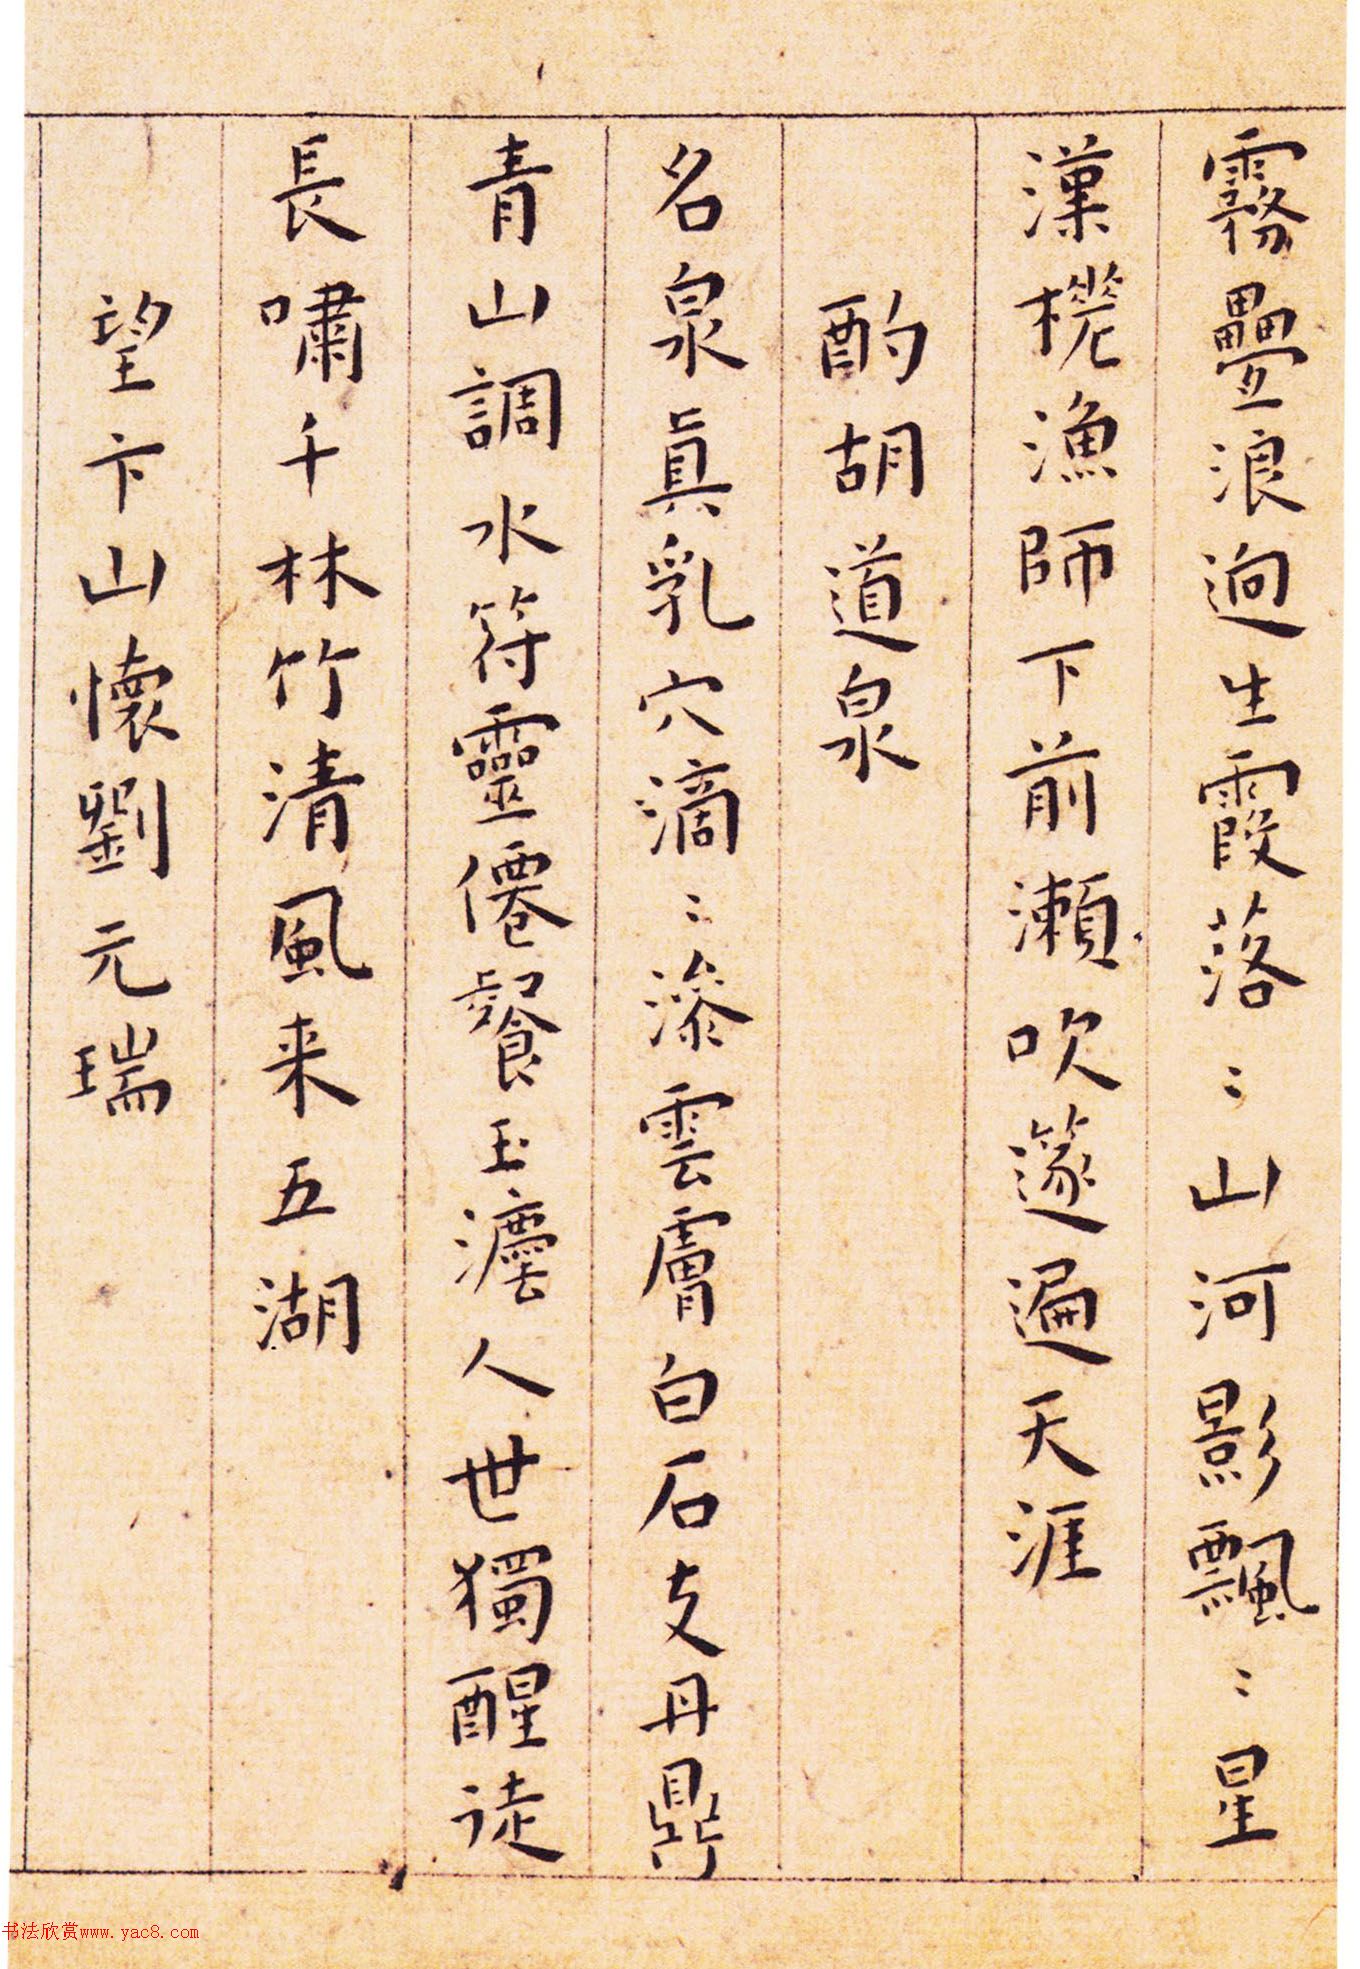 霧疊浪逈生霞落〻山河影飄〻星
漢槎漁師下前瀨吹篴遍天涯
酌胡道泉
名泉真乳穴滴〻滲雲膚白石支丹鼎
青山調水符靈僊餐玉瀣人世獨醒徒
長嘯千林竹清風来五湖
望卞山懷劉元瑞
书法欣赏www.yac8.com